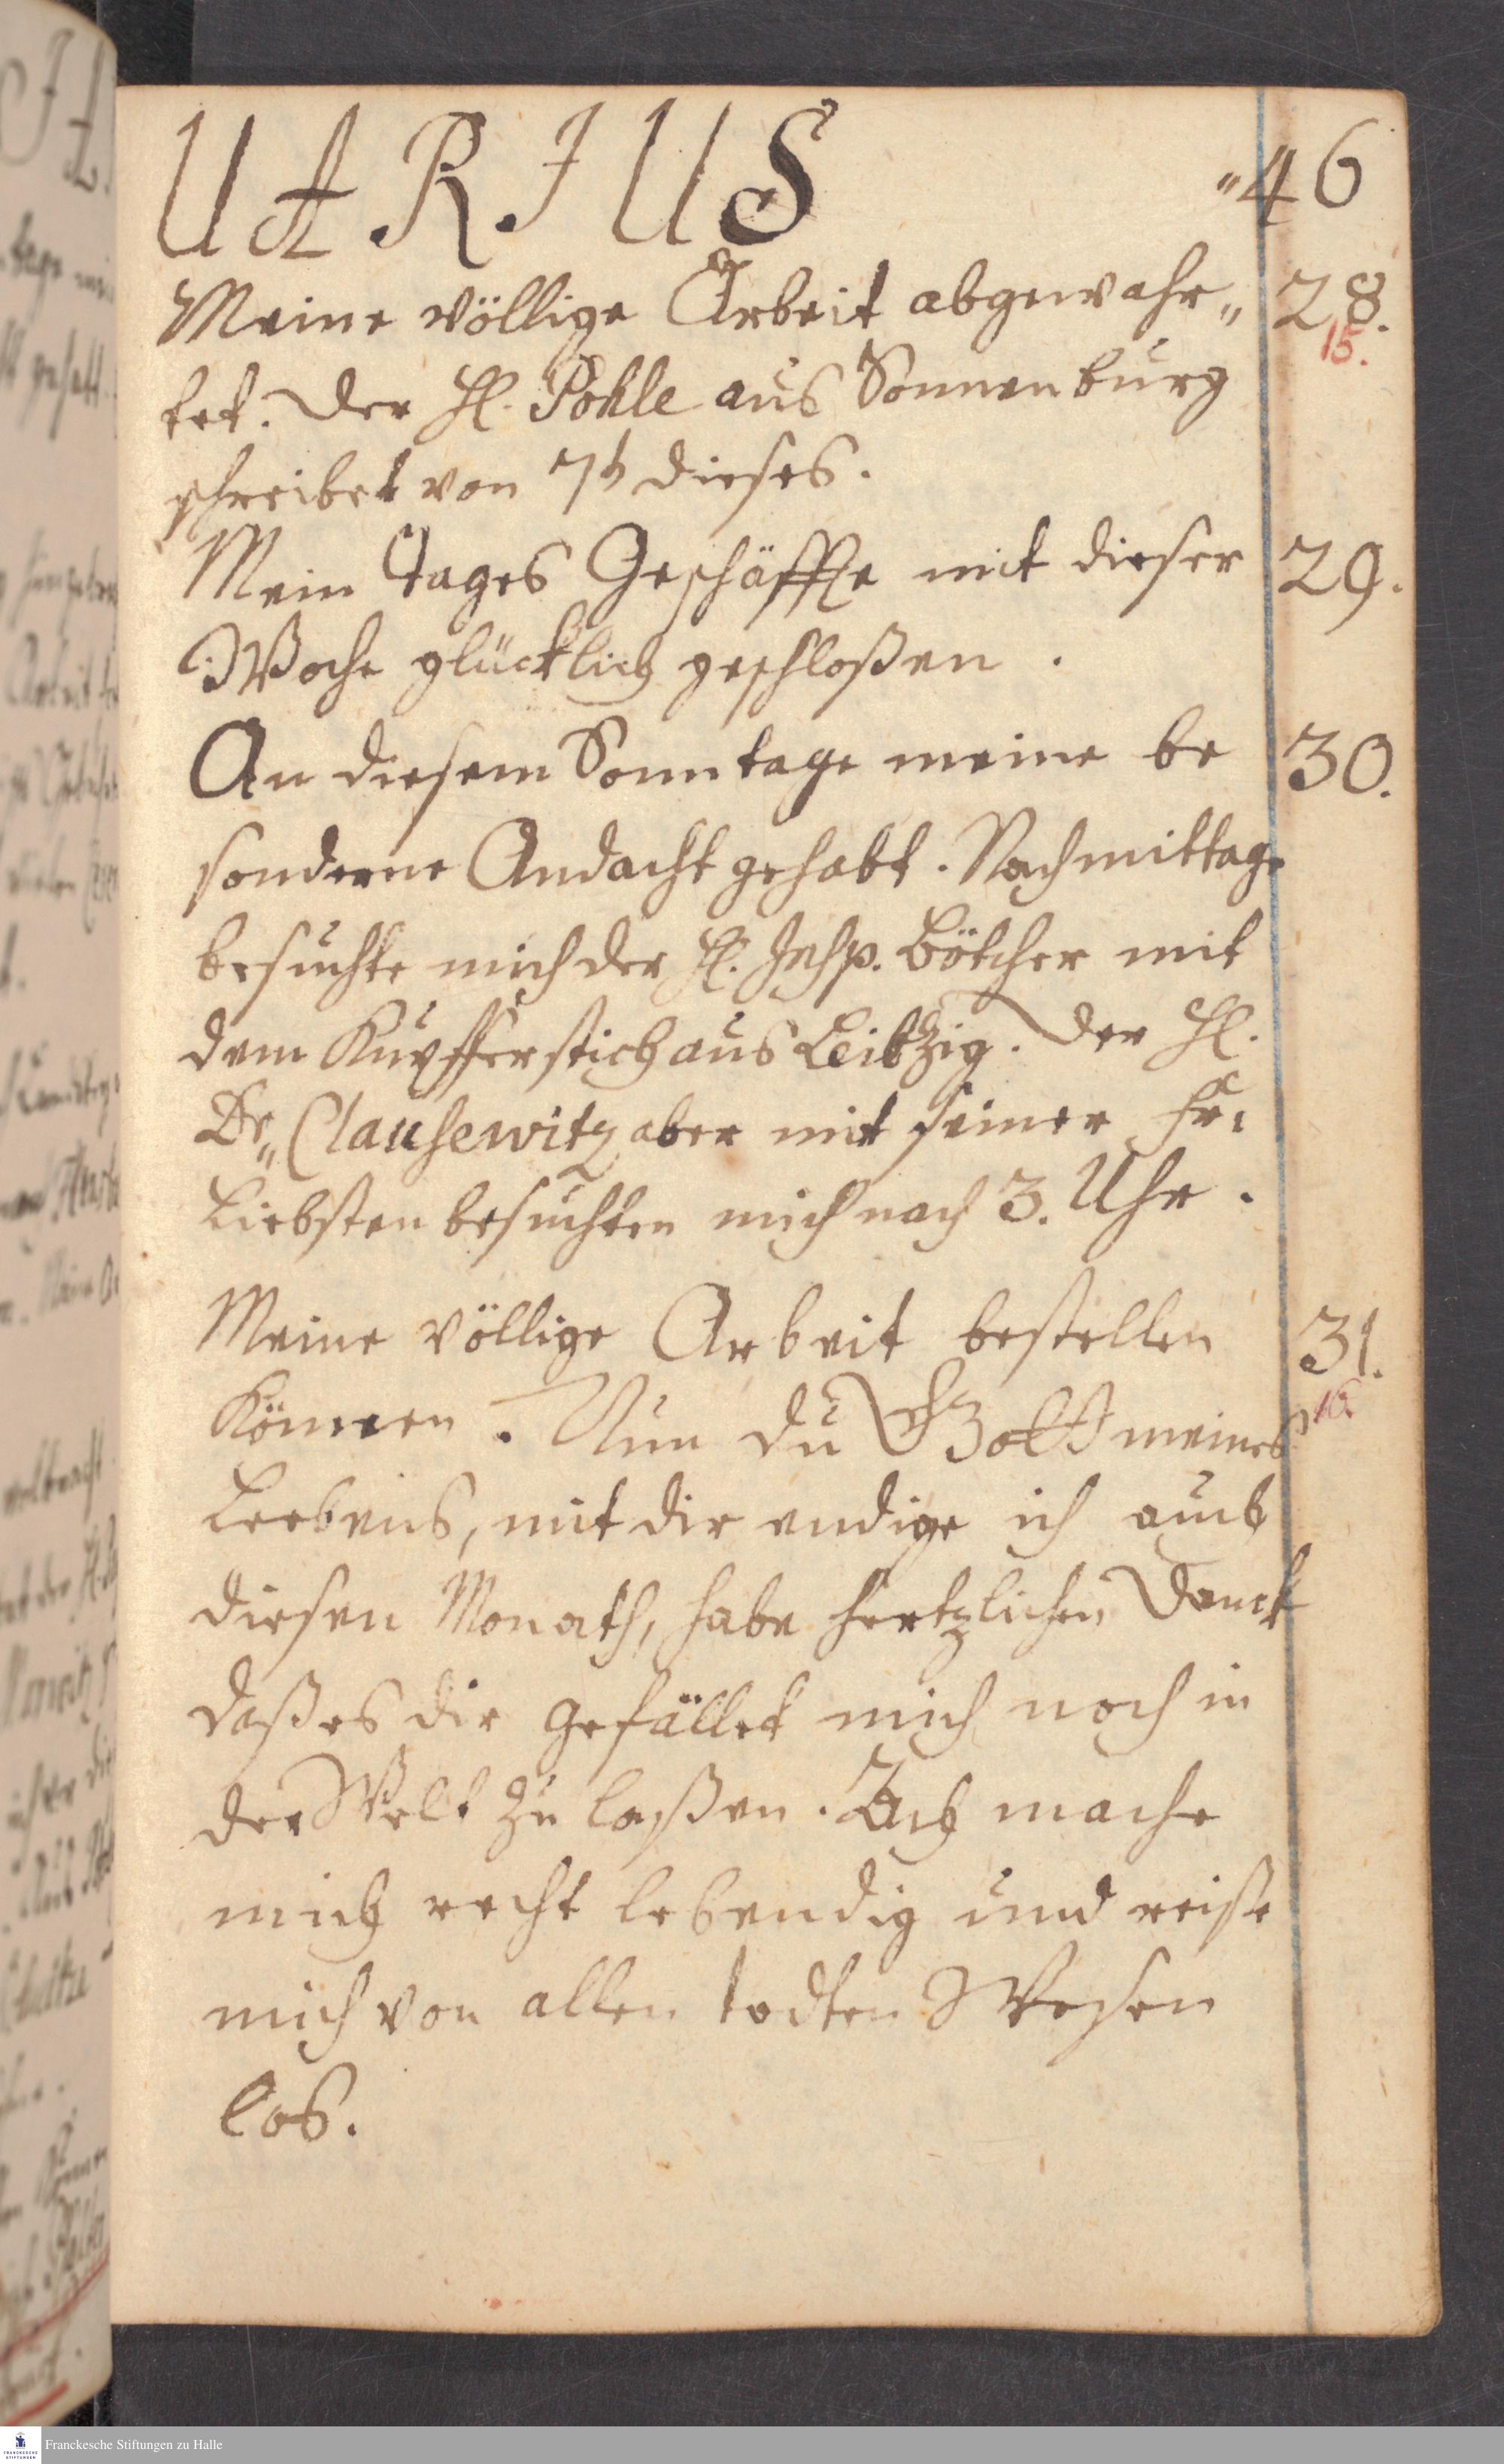 UARIUS "46
Meine völlige Arbeit abgewahr„ 28.
15.
tet. Der H. Pohle aus Sonnenburg
schreibet von 7b dieses.
Mein Tages Geschäffte mit dieser 29.
Woche glücklich geschloßen.
An diesem Sonntage meine be 30.
sondere Andacht gehabt. Nachmittage
besuchte mich der H. Insp. Bötcher mit
dem Kupfferstich aus Leibzig. Der H.
Dr„ Clausewitz aber mit seiner Fr:
Liebsten besuchten mich nach 3. Uhr.
Meine völlige Arbeit bestellen 31.
16.
Können. Nun du Gott meines
Leebens, mit dir endige ich auch
diesen Monath, habe hertzlichen Danck
daß es dir gefället mich noch in
der Welt zu laßen. Ach mache
mich recht lebendig und reiße
mich von allen todten Wesen
los.
Franckesche Stiftungen zu Halle